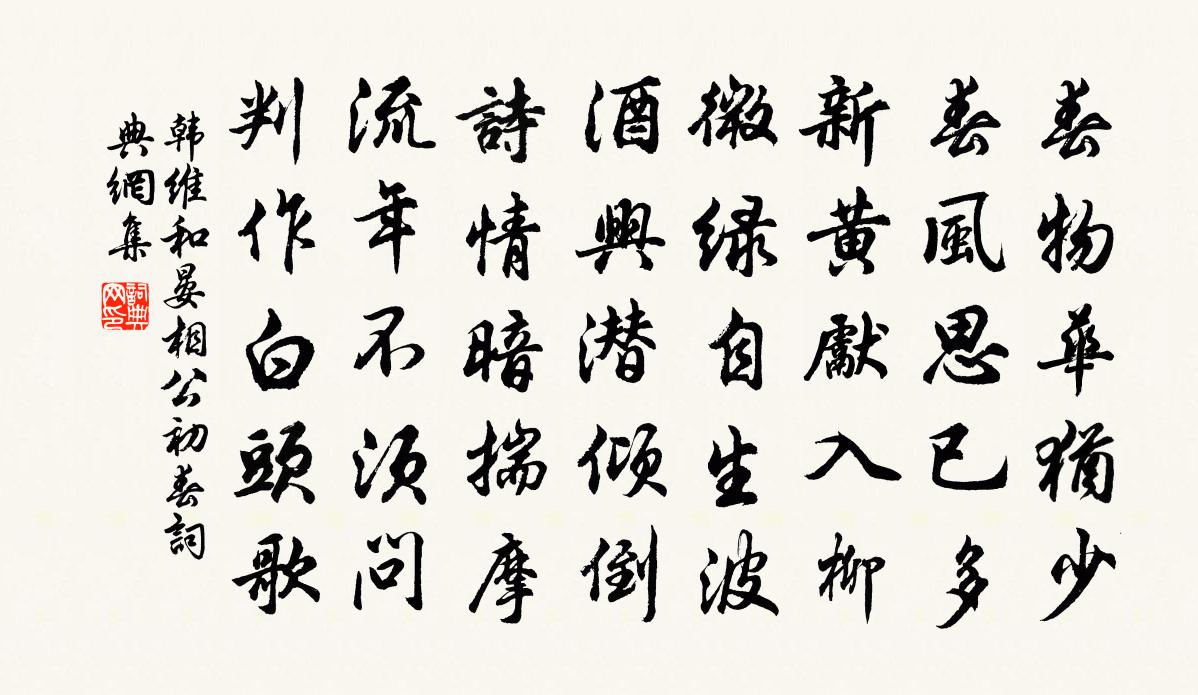 春物華猶少
春風思已多
新黃獻入柳
微綠自生波
酒興潜傾倒
詩情暗揣摩
流年不須問
判作白頭歌
韩維和晏相公初春詞
典網集
詞典
网印